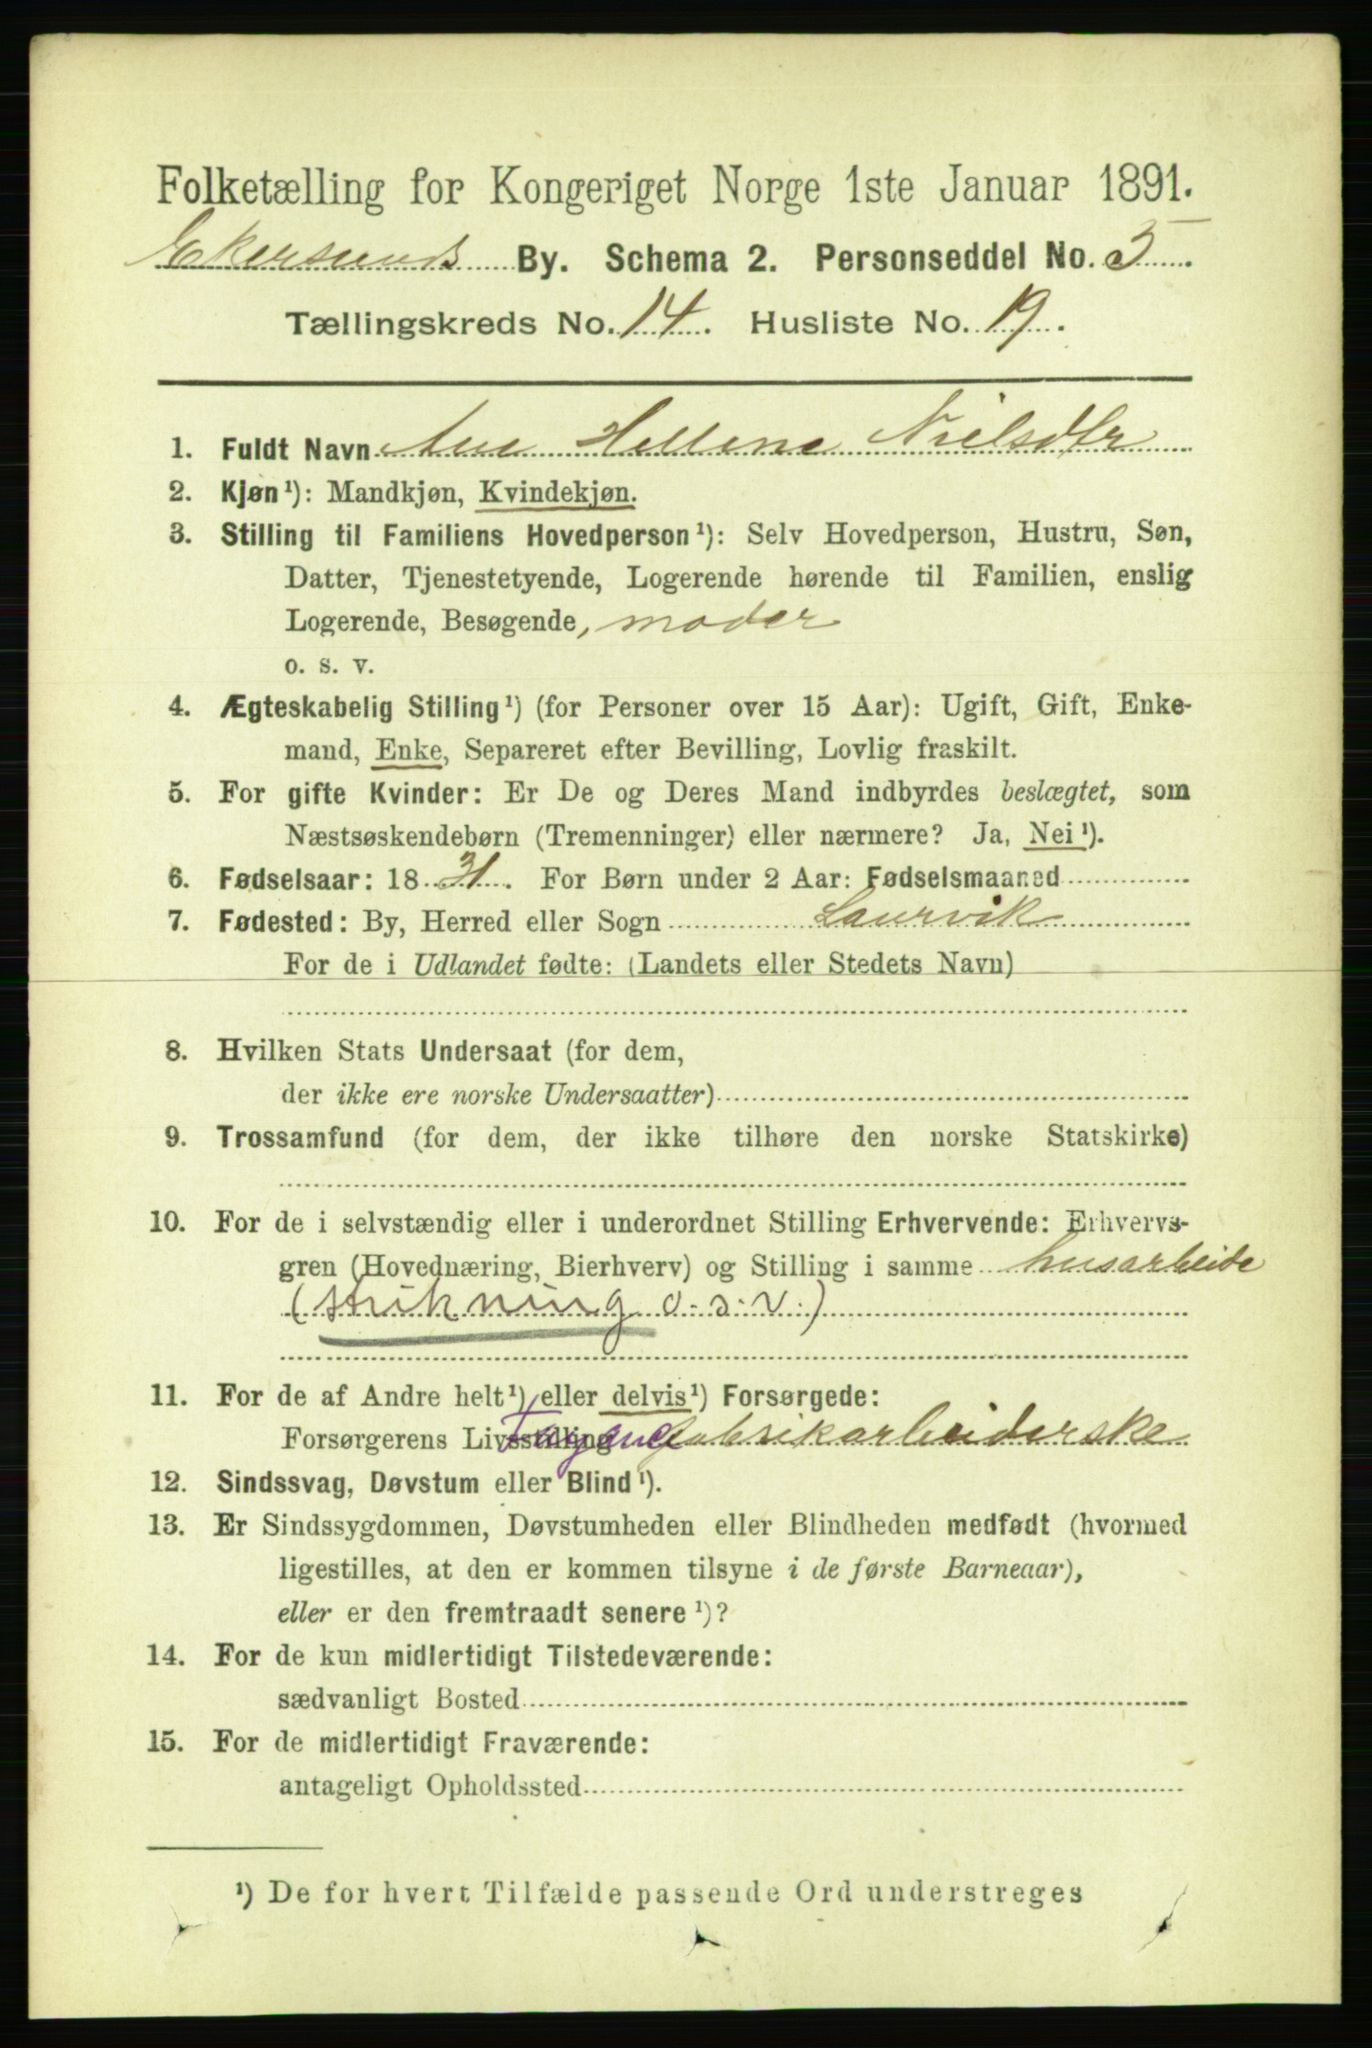 Folketælling for Kongeriget Norge 1ste Januar 1891.
Ekersunds By. Schema 2. Personseddel No. 5.
Tællingskreds No. 14. Husliste No. 19.
1. Fuldt Navn Ane Hellene Nielsdtr
2. Kjøn ¹): Mandkjøn, Kvindekjøn.
3. Stilling til Familiens Hovedperson ¹): Selv Hovedperson, Hustru, Søn,
Datter, Tjenestetyende, Logerende hørende til Familien, enslig
Logerende, Besøgende, moder
o. s. v.
4. Ægteskabelig Stilling ¹) (for Personer over 15 Aar): Ugift, Gift, Enke-
mand, Enke, Separeret efter Bevilling, Lovlig fraskilt.
5. For gifte Kvinder: Er De og Deres Mand indbyrdes beslægtet, som
Næstsøskendebørn (Tremenninger) eller nærmere? Ja, Nei ¹).
6. Fødselsaar: 1831. For Børn under 2 Aar: Fødselsmaaned
7. Fødested: By, Herred eller Sogn Laurvik
For de i Udlandet fødte: (Landets eller Stedets Navn)
8. Hvilken Stats Undersaat (for dem,
der ikke ere norske Undersaatter)
9. Trossamfund (for dem, der ikke tilhøre den norske Statskirke)
10. For de i selvstændig eller i underordnet Stilling Erhvervende: Erhvervs-
gren (Hovednæring, Bierhverv) og Stilling i samme husarbeide
(strikning o. s. v.)
11. For de af Andre helt ¹) eller delvis ¹) Forsørgede:
Forsørgerens Livsstilling Fayancefabrikarbeiderske
12. Sindssvag, Døvstum eller Blind ¹).
13. Er Sindssygdommen, Døvstumheden eller Blindheden medfødt (hvormed
ligestilles, at den er kommen tilsyne i de første Barneaar),
eller er den fremtraadt senere ¹)?
14. For de kun midlertidigt Tilstedeværende:
sædvanligt Bosted
15. For de midlertidigt Fraværende:
antageligt Opholdssted
¹) De for hvert Tilfælde passende Ord understreges